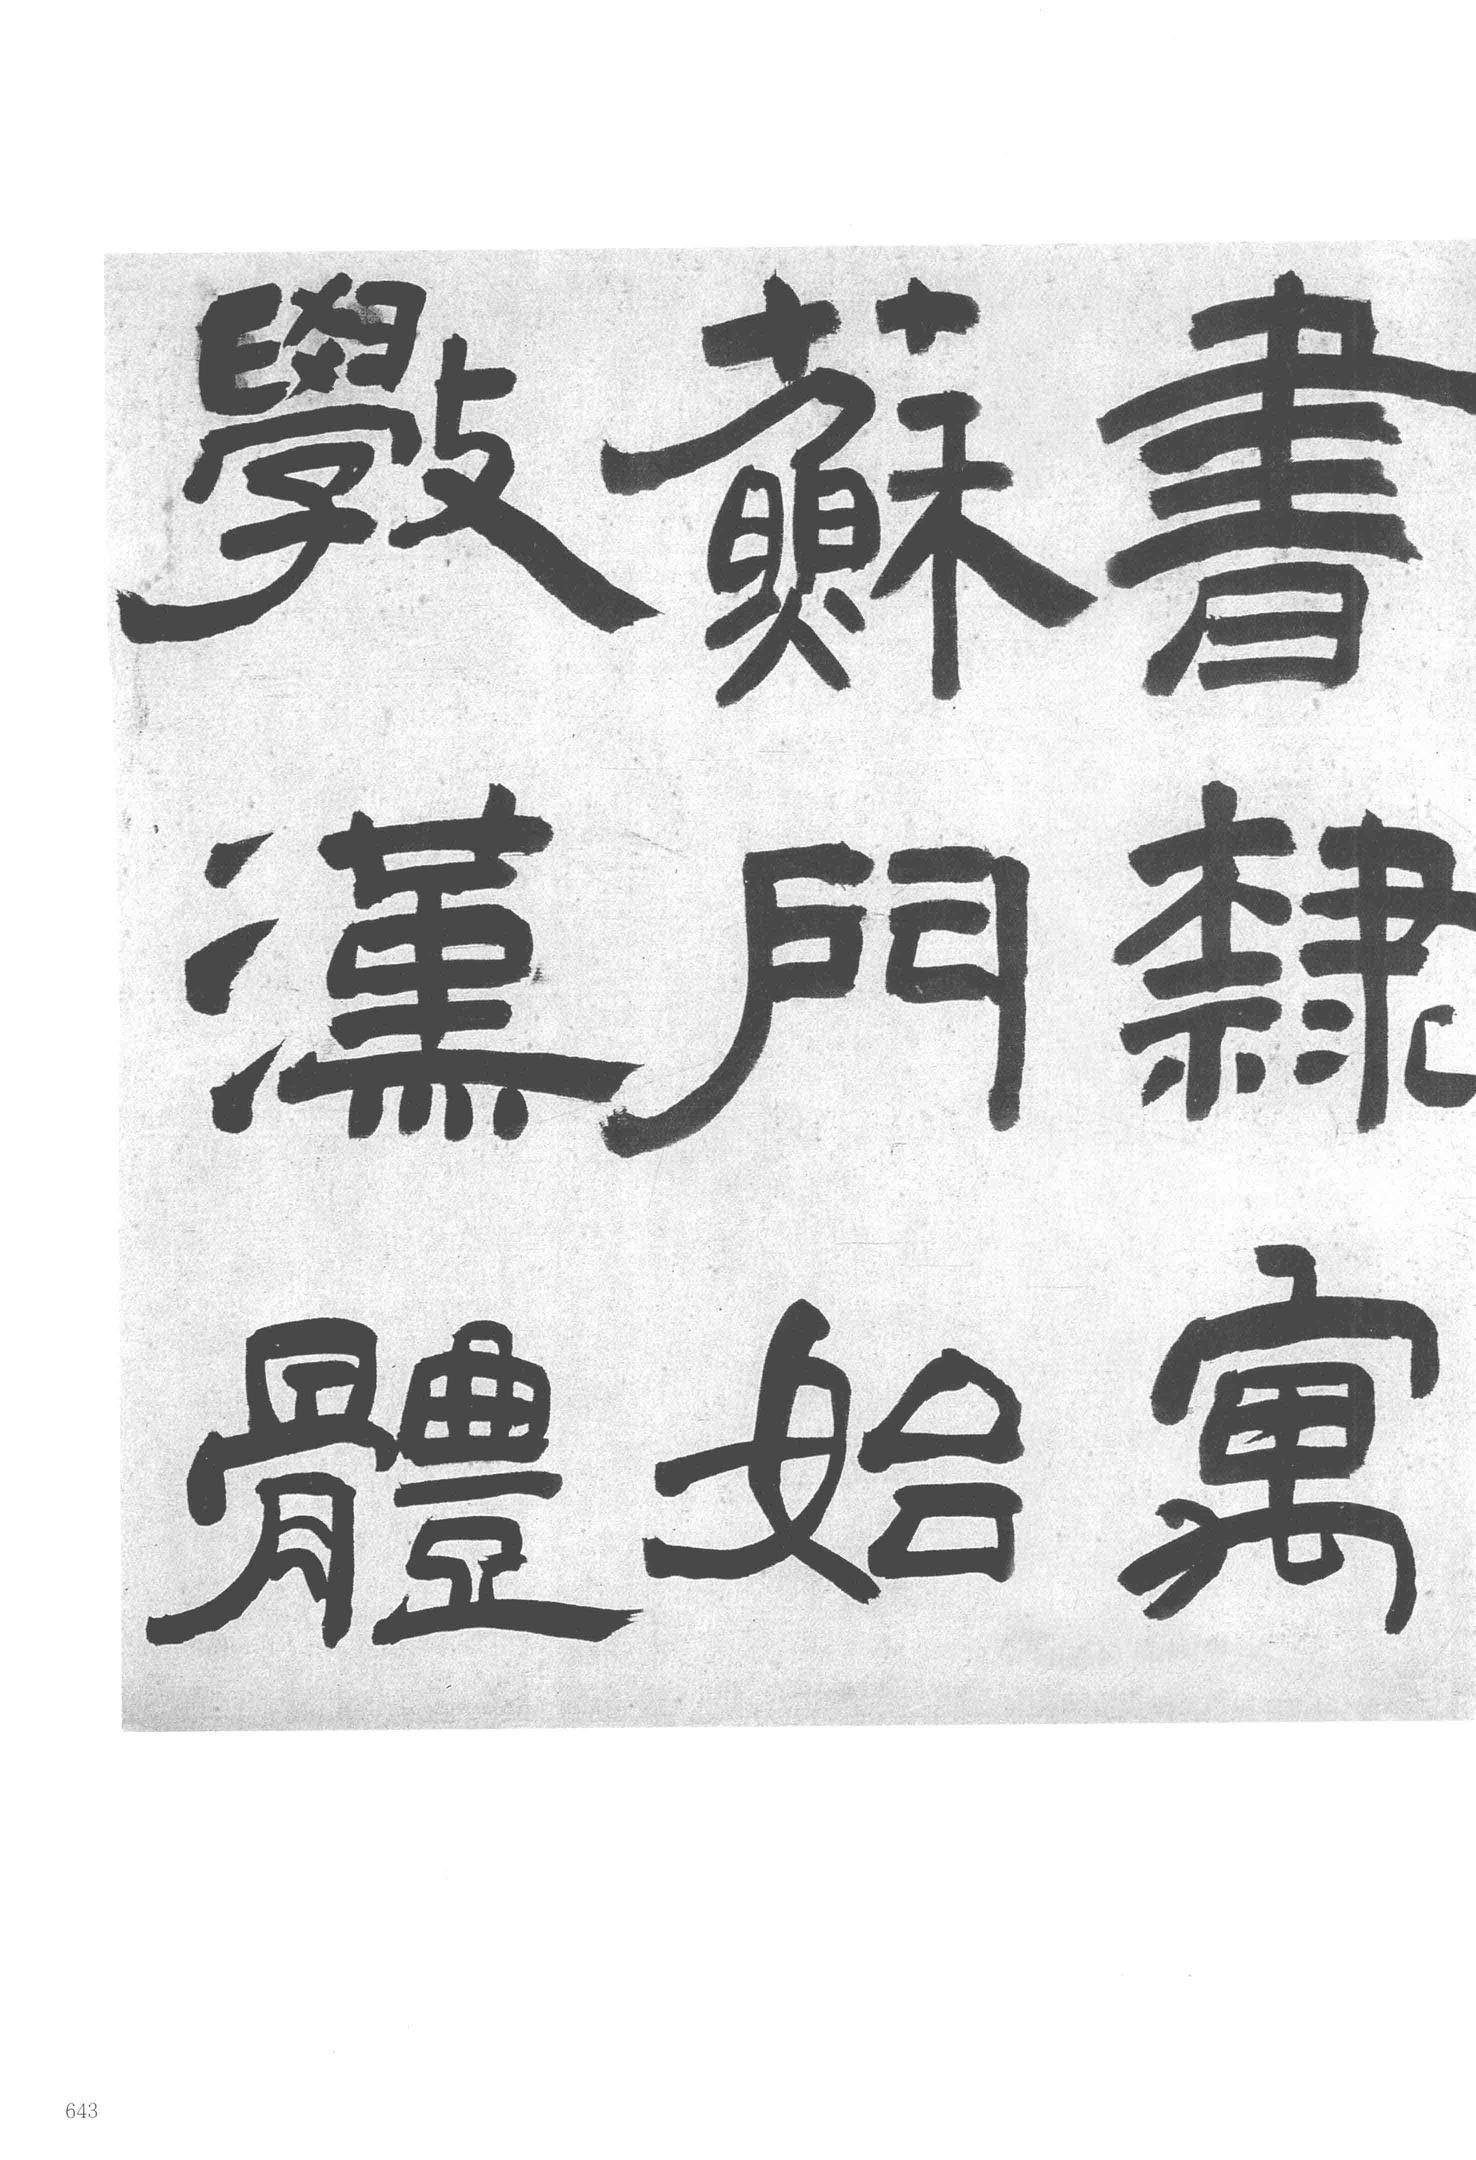 書隷寓
蘇門始
斅漢體
643